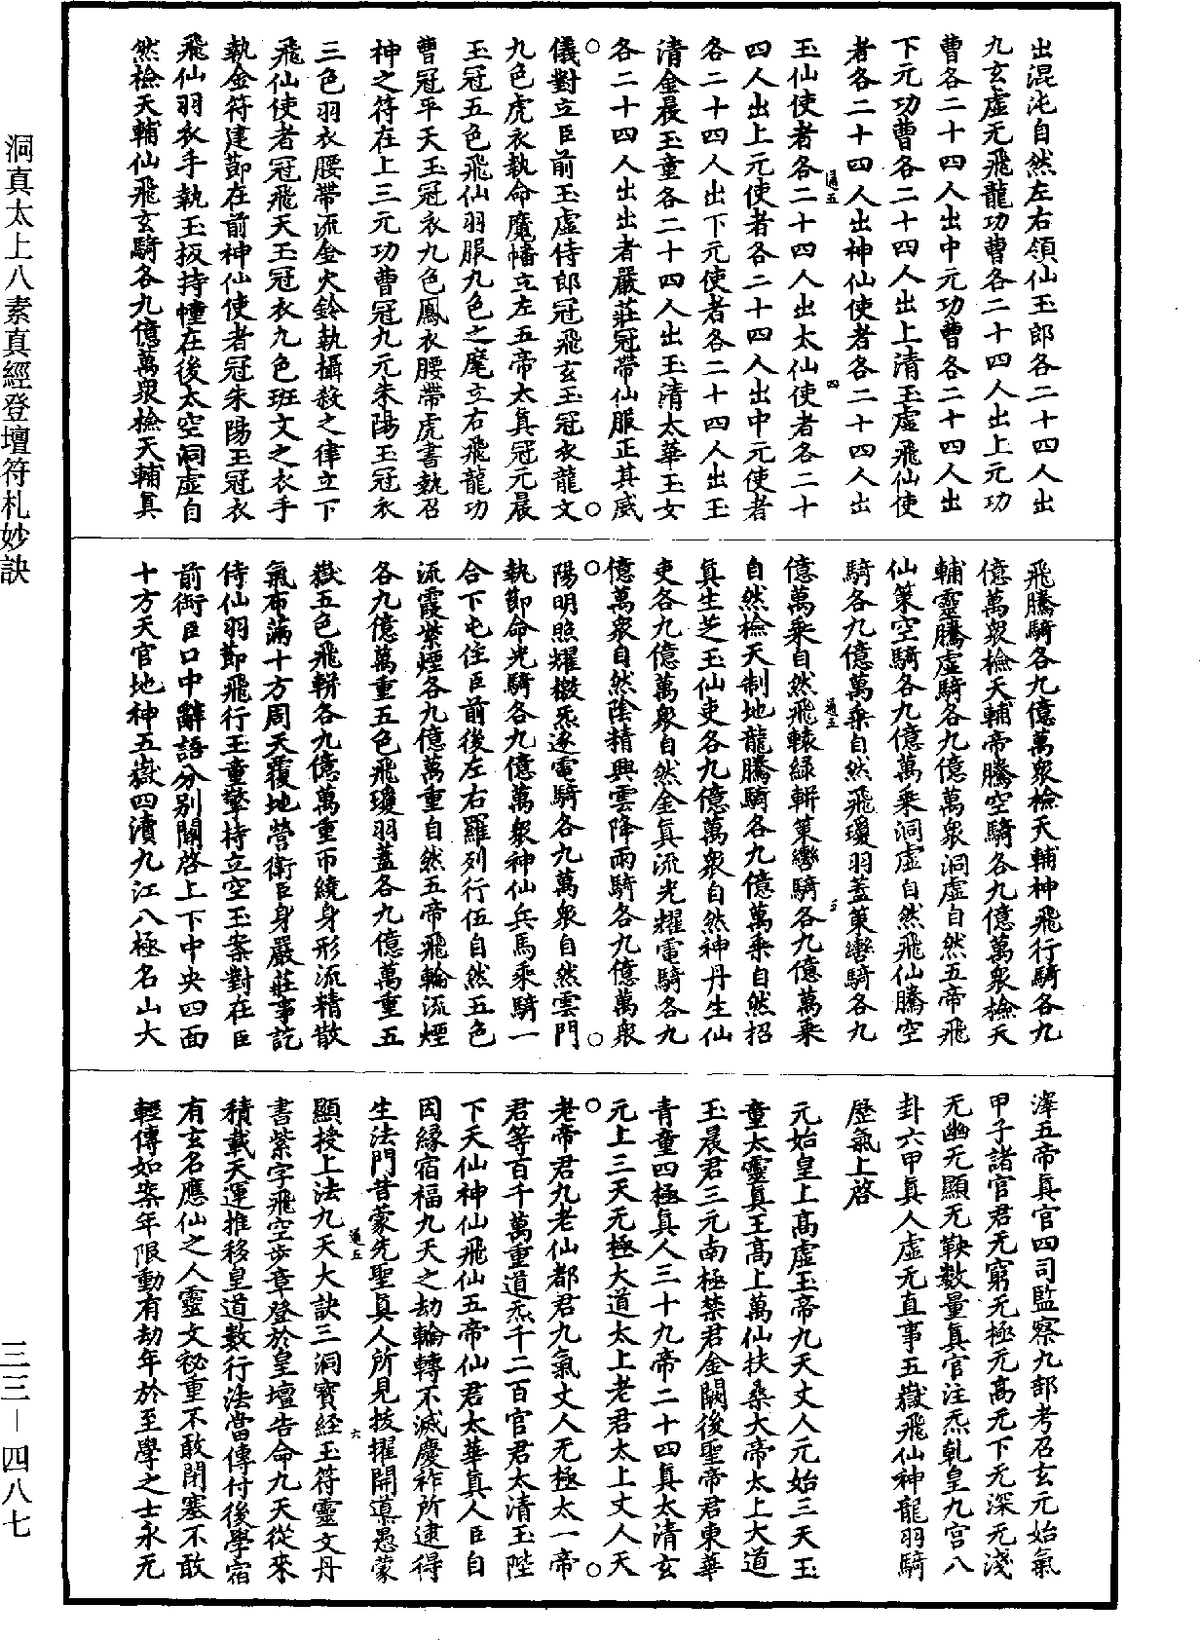 出混沌自然左右領仙玉郎各二十四人出
九玄虛无飛龍功曹各二十四人出上元功
曹各二十四人出中元功曹各二十四人出
下元功曹各二十四人出上清玉虛飛仙使
者各二十四人出神仙使者各二十四人出
通五
四
玉仙使者各二十四人出太仙使者各二十
四人出上元使者各二十四人出中元使者
各二十四人出下元使者各二十四人出玉
清金晨玉童各二十四人出玉清太華玉女
各二十四人出出者嚴莊冠帶仙服正其威
儀對立臣前玉虛侍郎冠飛玄玉冠衣龍文
九色虎衣執命魔幡立左五帝太真冠元晨
玉冠五色飛仙羽服九色之麾立右飛龍功
曹冠平天玉冠衣九色鳳衣腰帶虎書執召
神之符在上三元功曹冠九元朱陽玉冠衣
三色羽衣腰帶流金火鈴執攝殺之律立下
飛仙使者冠飛天玉冠衣九色班文之衣手
執金符建節在前神仙使者冠朱陽玉冠衣
飛仙羽衣手執玉板持幢在後太空洞虛自
然檢天輔仙飛玄騎各九億萬衆檢天輔真
飛騰騎各九億萬衆檢天輔神飛行騎各九
億萬衆檢天輔帝騰空騎各九億萬衆檢天
輔靈騰虛騎各九億萬衆洞虛自然五帝飛
仙策空騎各九億萬乘洞虛自然飛仙騰空
騎各九億萬乘自然飛瓊羽蓋策轡騎各九
通五
五
億萬乘自然飛轅綠軿策轡騎各九億萬乘
自然檢天制地龍騰騎各九億萬乘自然招
真生芝玉仙吏各九億萬衆自然神丹生仙
吏各九億萬衆自然金真流光耀電騎各九
億萬衆自然陰精興雲降雨騎各九億萬衆
陽明照耀檄炁逐電騎各九萬衆自然雲門
執節命光騎各九億萬衆神仙兵馬乘騎一
合下屯住臣前後左右羅列行伍自然五色
流霞紫煙各九億萬重自然五帝飛輪流煙
各九億萬重五色飛瓊羽蓋各九億萬重五
嶽五色飛軿各九億萬重帀繞身形流精散
氣布滿十方周天覆地營衛臣身嚴莊事訖
侍仙羽節飛行玉童擎持立空玉案對在臣
前銜臣口中辭語分別關啓上下中央四面
十方天官地神五嶽四瀆九江八極名山大
澤五帝真官四司監察九部考召玄元始氣
甲子諸官君无窮无極无高无下无深无淺
无幽无顯无鞅數量真官注炁乹皇九宮八
卦六甲真人虛无直事五嶽飛仙神龍羽騎
歷氣上啓
元始皇上高虛玉帝九天丈人元始三天玉
童太靈真王高上萬仙扶桑大帝太上大道
玉晨君三元南極禁君金闕後聖帝君東華
青童四極真人三十九帝二十四真太清玄
元上三天无極大道太上老君太上丈人天
老帝君九老仙都君九氣丈人无極太一帝
君等百千萬重道炁千二百官君太清玉陛
下天仙神仙飛仙五帝仙君太華真人臣自
因緣宿福九天之劫輪轉不滅慶祚所逮得
生法門昔蒙先聖真人所見拔擢開導愚蒙
通五
六
顯授上法九天大訣三洞寶經玉符靈文丹
書紫字飛空步章登於皇壇告命九天從來
積載天運推移皇道數行法當傳付後學宿
有玄名應仙之人靈文祕重不敢閉塞不敢
輕傳如案年限動有劫年於至學之士永无
洞真太上八素真經登壇符札妙訣
三三—四八七